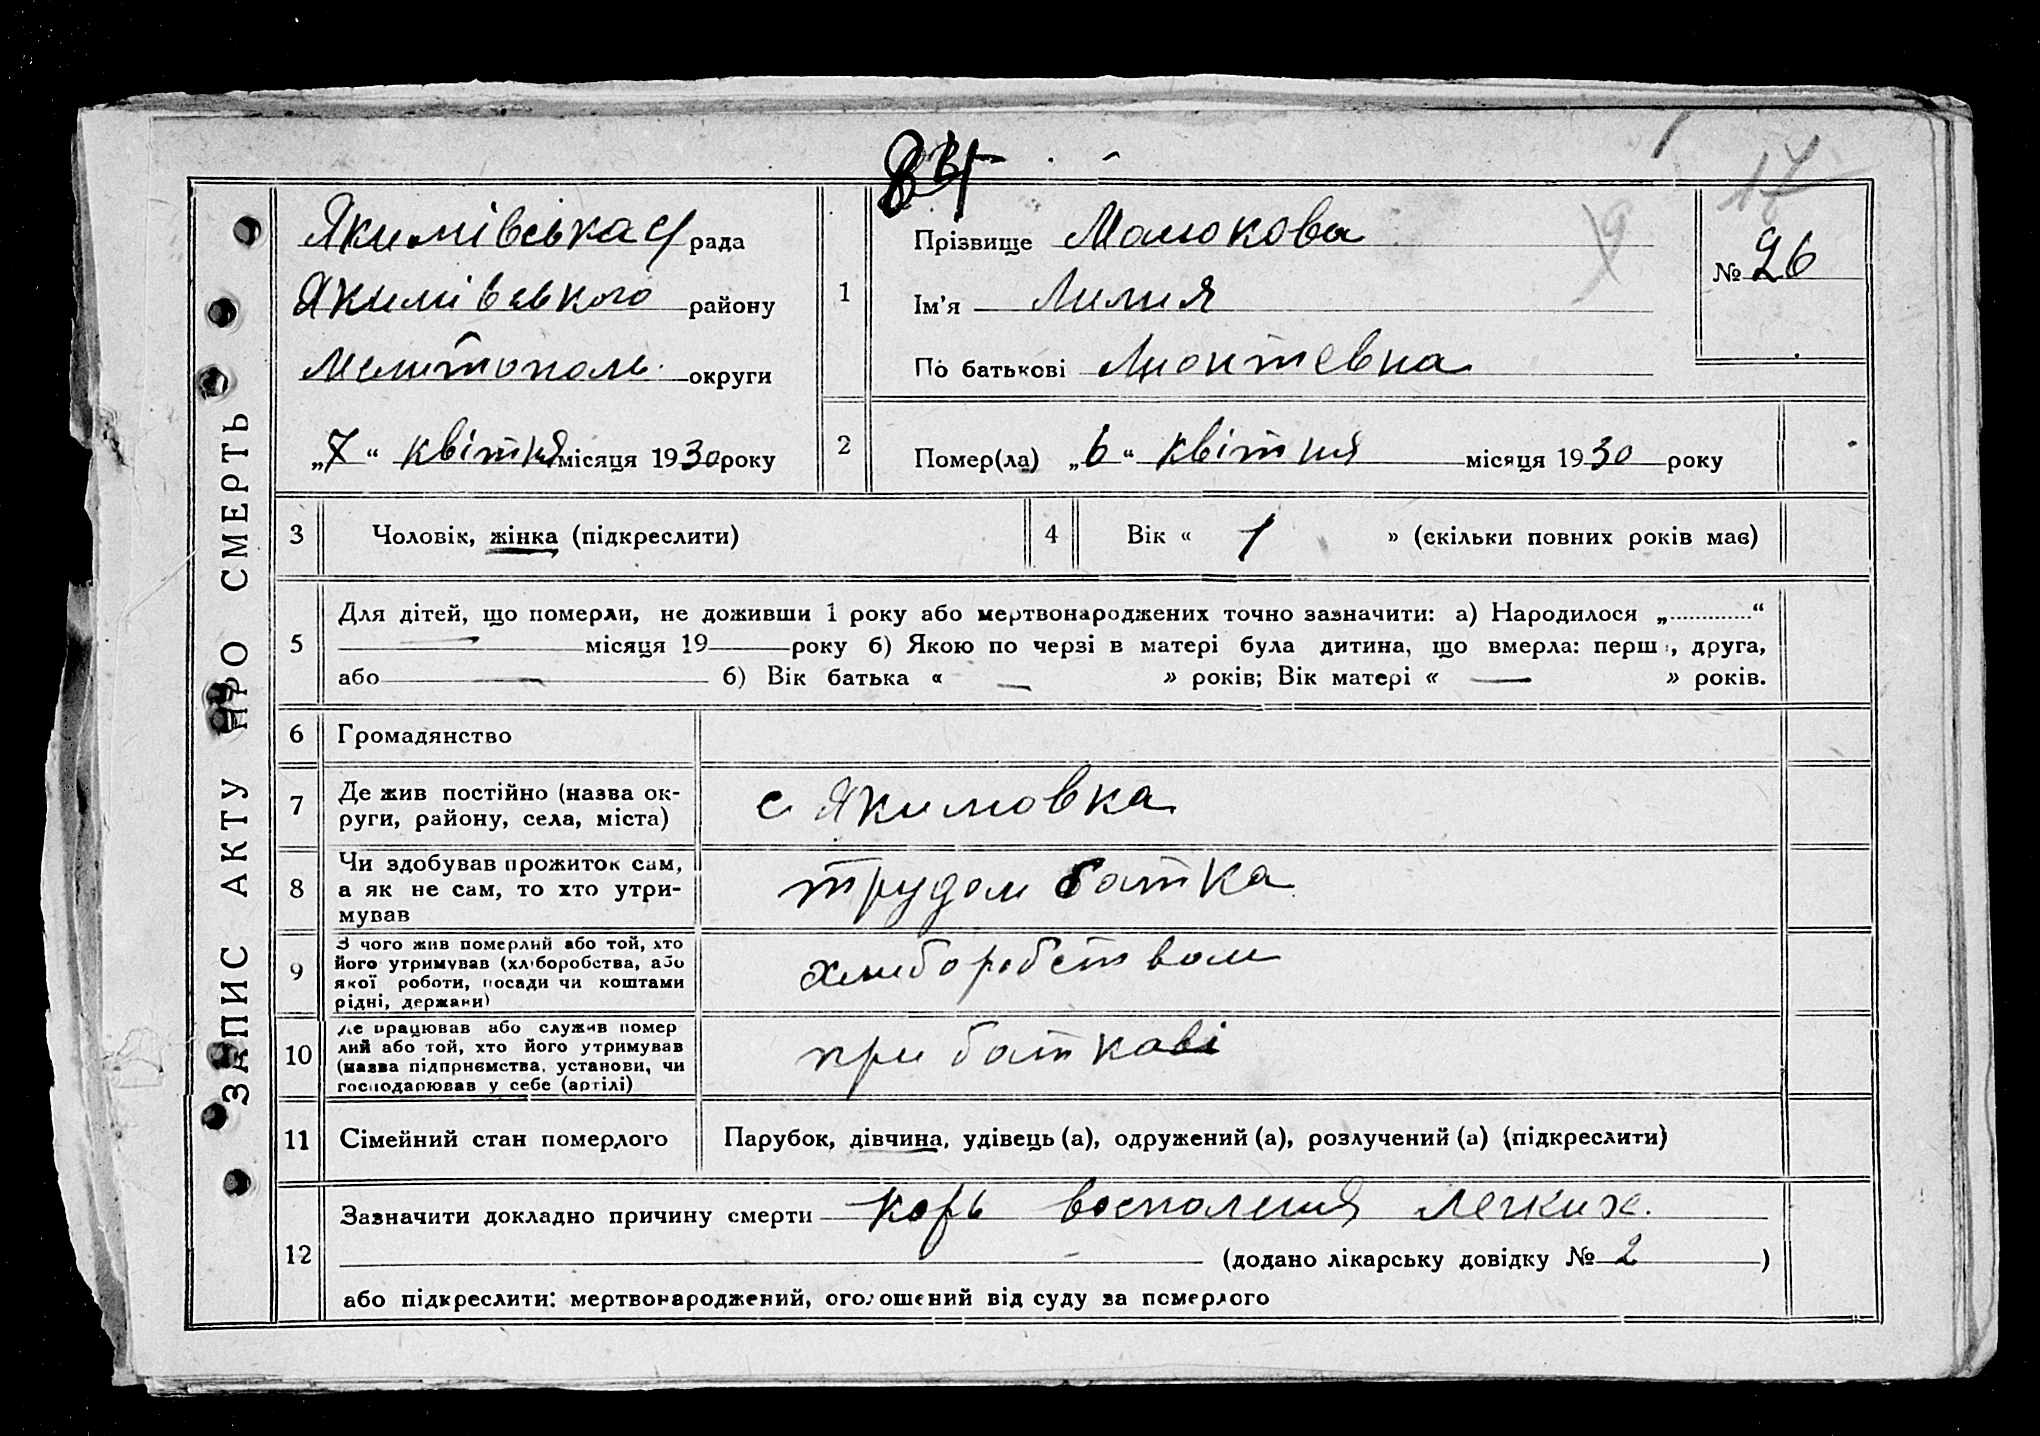 17
Якимівська с/рада
Якимівського району
Мелитополь. округи
„7“ квітня місяця 1930 року
1
Прізвище Малюкова
Ім'я Лилия
По батькові
№ 26
9
2
Помер(ла) „6“ квітня місяця 1930 року
ЗАПИС АКТУ ПРО СМЕРТЬ
3 Чоловік, жінка (підкреслити)
4 Вік « 1 » (скільки повних років має)
5
Для дітей, що померли, не доживши 1 року або мертвонароджених точно зазначити: а) Народилося „..............“
— місяця 19 року б) Якою по черзі в матері була дитина, що вмерла: перша, друга,
або — б) Вік батька « — » років; Вік матері « — » років.
6 Громадянство
7
Де жив постійно (назва ок-
руги, району, села, міста)
с Якимовка
8
Чи здобував прожиток сам,
а як не сам, то хто утри-
мував
трудом батка
9
З чого жив померлий або той, хто
його утримував (хліборобства, або
якої роботи, посади чи коштами
рідні, держави)
хлиборобством
10
Де працював або служив помер
лий або той, хто його утримував
(назва підприємства, установи, чи
господарював у себе (артілі)
при баткові
11 Сімейний стан померлого
Парубок, дівчина, удівець (а), одружений (а), розлучений (а) (підкреслити)
12
Зазначити докладно причину смерти корь воспаления легких.
(додано лікарську довідку № 2)
або підкреслити: мертвонароджений, оголошений від суду за померлого